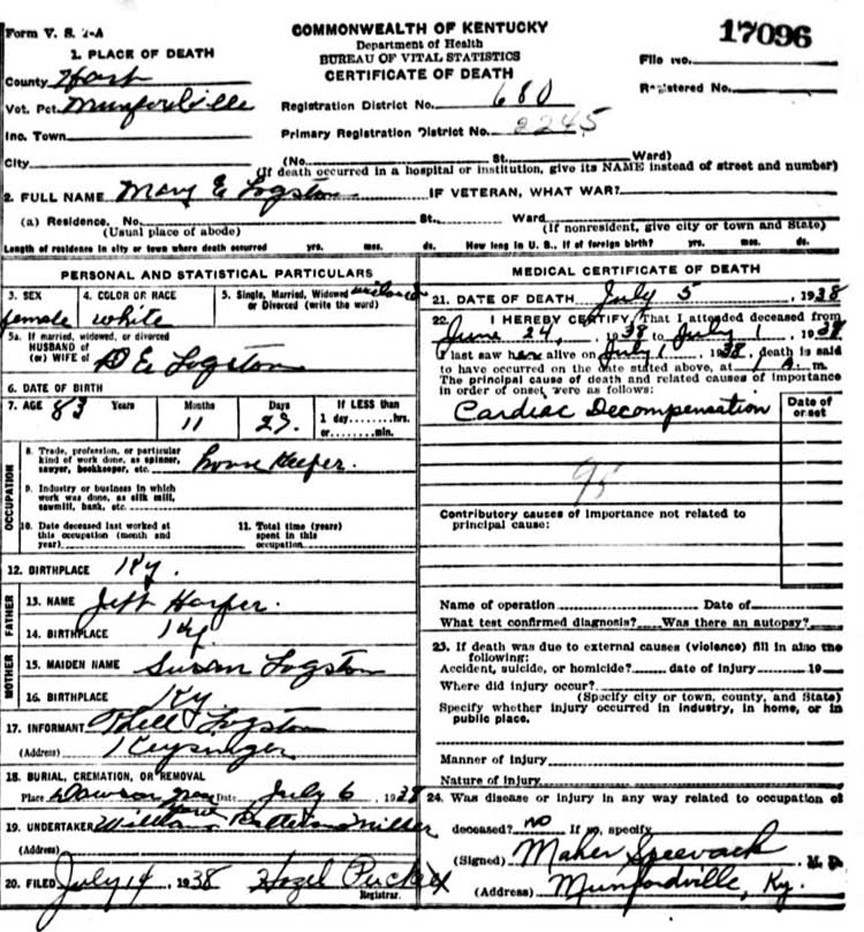 Form V. S. 1-A
COMMONWEALTH OF KENTUCKY
Department of Health
BUREAU OF VITAL STATISTICS
CERTIFICATE OF DEATH
17096
File No.
Registered No.
1. PLACE OF DEATH
County Hart
Vot. Pct. Munfordville
Inc. Town
City
Registration District No. 680
Primary Registration District No. 2245
(No. St. Ward)
(If death occurred in a hospital or institution, give its NAME instead of street and number)
2. FULL NAME Mary E Logston IF VETERAN, WHAT WAR?
(a) Residence. No. St. Ward
(Usual place of abode) (If nonresident, give city or town and State)
Length of residence in city or town where death occurred yrs. mos. ds. How long in U. S., if of foreign birth? yrs. mos. ds.
PERSONAL AND STATISTICAL PARTICULARS
3. SEX female
4. COLOR OR RACE white
5. Single, Married, Widowed widowed
or Divorced (write the word)
5a. If married, widowed, or divorced
HUSBAND of
(or) WIFE of D E Logston
6. DATE OF BIRTH
7. AGE 83 Years 11 Months 27. Days
If LESS than
1 day hrs.
or min.
OCCUPATION
8. Trade, profession, or particular
kind of work done, as spinner,
sawyer, bookkeeper, etc. house Keeper.
9. Industry or business in which
work was done, as silk mill,
sawmill, bank, etc.
10. Date deceased last worked at
this occupation (month and
year)
11. Total time (years)
spent in this
occupation
12. BIRTHPLACE Ky.
FATHER
13. NAME Jeff Harper.
14. BIRTHPLACE Ky.
MOTHER
15. MAIDEN NAME Susan Logston
16. BIRTHPLACE Ky
17. INFORMANT Logston
(Address)
18. BURIAL, CREMATION, OR REMOVAL
Place Dawson Date July 6, 1938
19. UNDERTAKER
(Address)
20. FILED July 14, 1938 Hazel Puckett
Registrar.
MEDICAL CERTIFICATE OF DEATH
21. DATE OF DEATH July 5, 1938
22. I HEREBY CERTIFY, That I attended deceased from
June 24, 1938 to July 1, 1938
I last saw her alive on July 1, 1938, death is said
to have occurred on the date stated above, at 1 A. m.
The principal cause of death and related causes of importance
in order of onset were as follows:
Date of
onset
Cardiac Decompensation
95
Contributory causes of importance not related to
principal cause:
Name of operation Date of
What test confirmed diagnosis? Was there an autopsy?
23. If death was due to external causes (violence) fill in also the
following:
Accident, suicide, or homicide? date of injury 19
Where did injury occur?
(Specify city or town, county, and State)
Specify whether injury occurred in industry, in home, or in
public place.
Manner of injury
Nature of injury
24. Was disease or injury in any way related to occupation of
deceased? no If so, specify
(Signed) Maher Speevack M. D.
(Address) Munfordville, Ky.